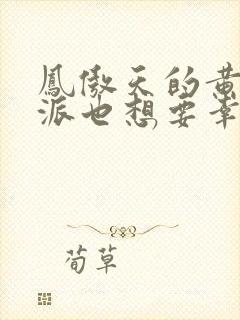 鳳傲天的黃
派也想要幸
荀草